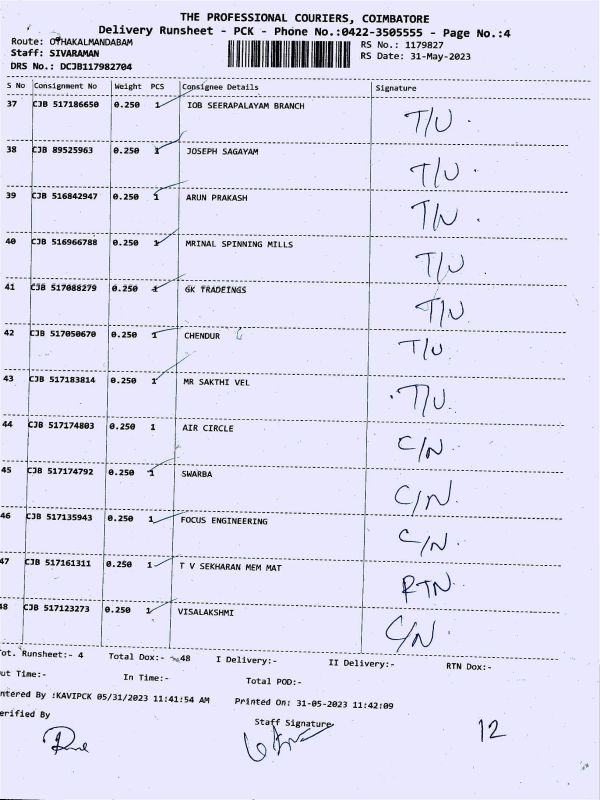 THE PROFESSIONAL COURIERS, COIMBATORE
Delivery Runsheet - PCK - Phone No.:0422-3505555 - Page No.:4
Route: OTHAKALMANDABAM RS No.: 1179827
Staff: SIVARAMAN RS Date: 31-May-2023
DRS No.: DCJB117982704
S No Consignment No Weight PCS Consignee Details Signature
37 CJB 517186650 0.250 1 IOB SEERAPALAYAM BRANCH T/U.
38 CJB 89525963 0.250 1 JOSEPH SAGAYAM T/U.
39 CJB 516842947 0.250 1 ARUN PRAKASH T/U.
40 CJB 516966788 0.250 1 MRINAL SPINNING MILLS T/U
41 CJB 517088279 0.250 1 GK TRADEINGS T/U
42 CJB 517050670 0.250 1 CHENDUR T/U.
43 CJB 517183814 0.250 1 MR SAKTHI VEL T/U.
44 CJB 517174803 0.250 1 AIR CIRCLE C/N.
45 CJB 517174792 0.250 1 SWARBA C/N.
46 CJB 517135943 0.250 1 FOCUS ENGINEERING C/N.
47 CJB 517161311 0.250 1 T V SEKHARAN MEM MAT RTN
48 CJB 517123273 0.250 1 VISALAKSHMI C/N.
ot. Runsheet:- 4 Total Dox:- 48 I Delivery:- II Delivery:- RTN Dox:-
ut Time:- In Time:- Total POD:-
ntered By :KAVIPCK 05/31/2023 11:41:54 AM Printed On: 31-05-2023 11:42:09
erified By Staff Signature
12